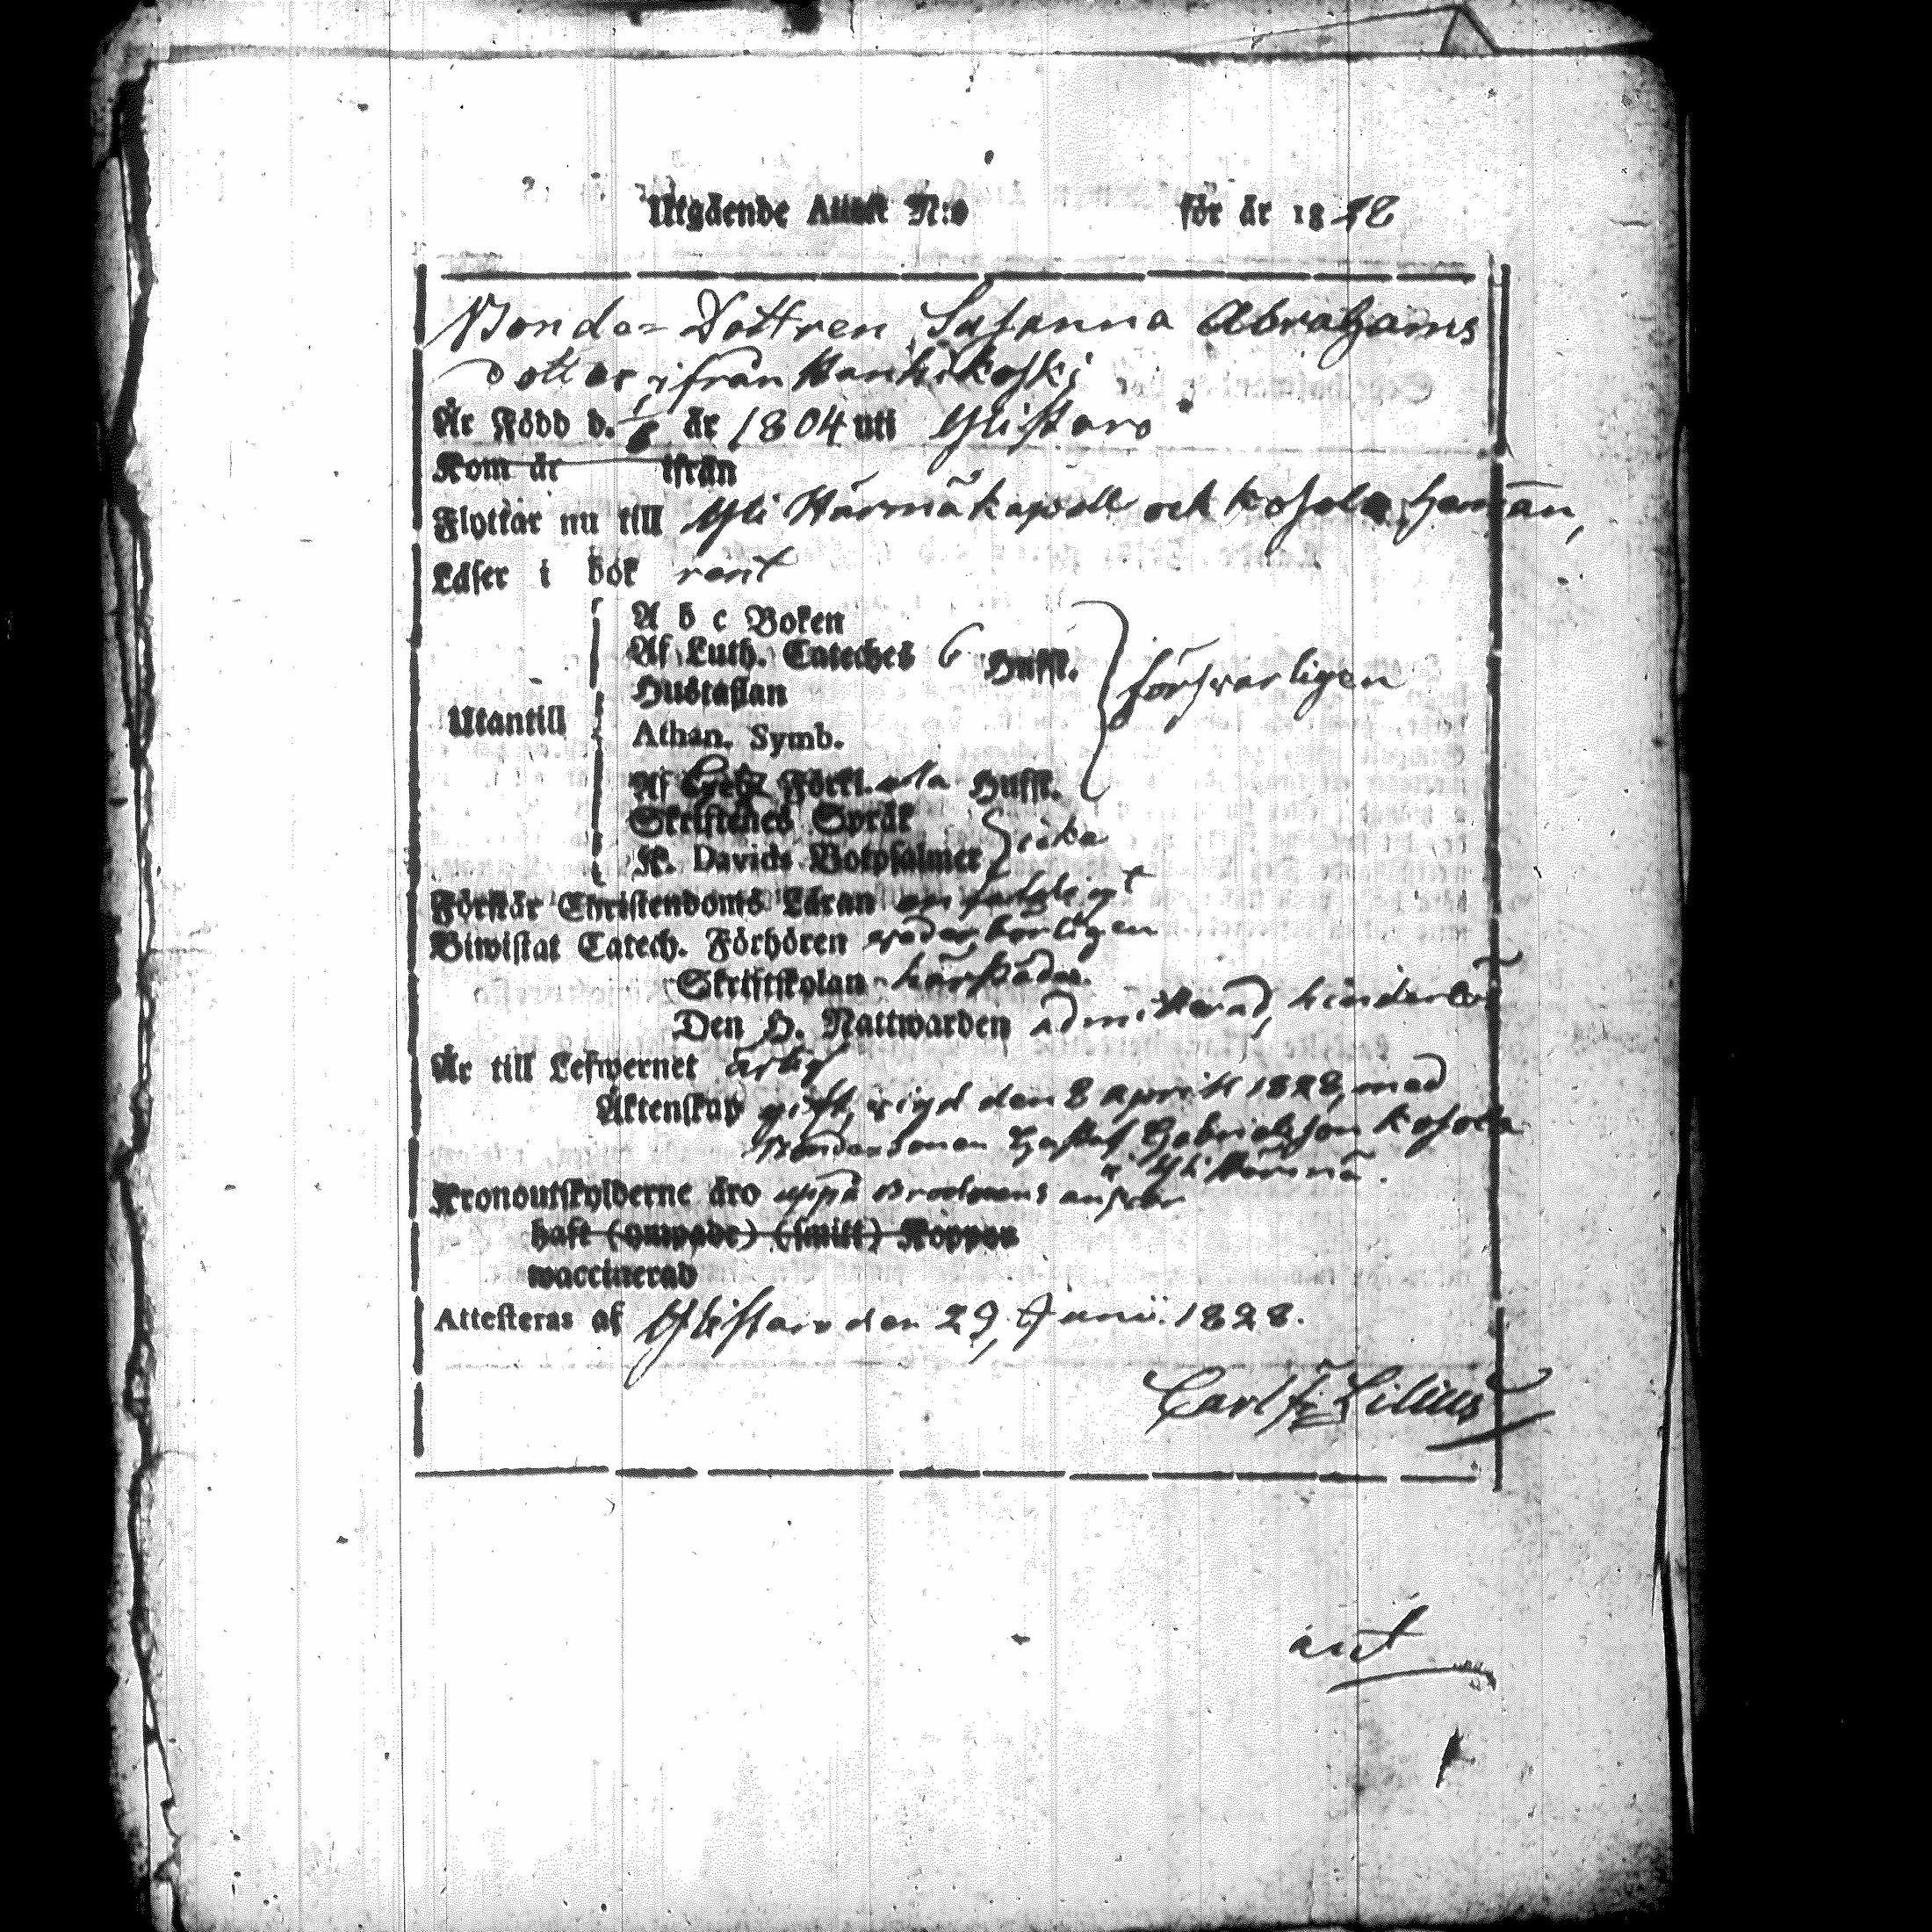 Utgående Attest N:o för år 1828
Bonde= Dottren Susanna Abrahams
dotter ifrån Hanhikoski
Är Född d. 1/6 år 1804 uti Ylistaro
Kom år ifrån
Flyttar nu till Yli Härmä kapell och Kosola heman,
Läser i bok rent
Utantill
A b c Boken
Af Luth. Cateches 6 Hufst.
Hustaflan
försvarligen
Athan. Symb.
Af Förkl. alla Hufst.
Skriftenes Språk
K. Davids Botpsalmer
icke
Förstår Christendoms Läran enfaldigt
Biwistat Catech. Förhören wederbörligen
Skriftskolan härstädes.
Den H. Nattwarden admitterad, hinderlös
Är till Lefwernet ärlig
Äktenskap gift, vigd den 8 april 1828, med
Bondesonen Gustaf Gabrielsson Kosola
i Yli Härmä.
Kronoutskylderne äro uppå Brodrens ansvar
haft (ympade) (smitt) Koppor
waccinerad
Attesteras af Ylistaro den 29 Junii 1828.
Carl Fr. Lilius